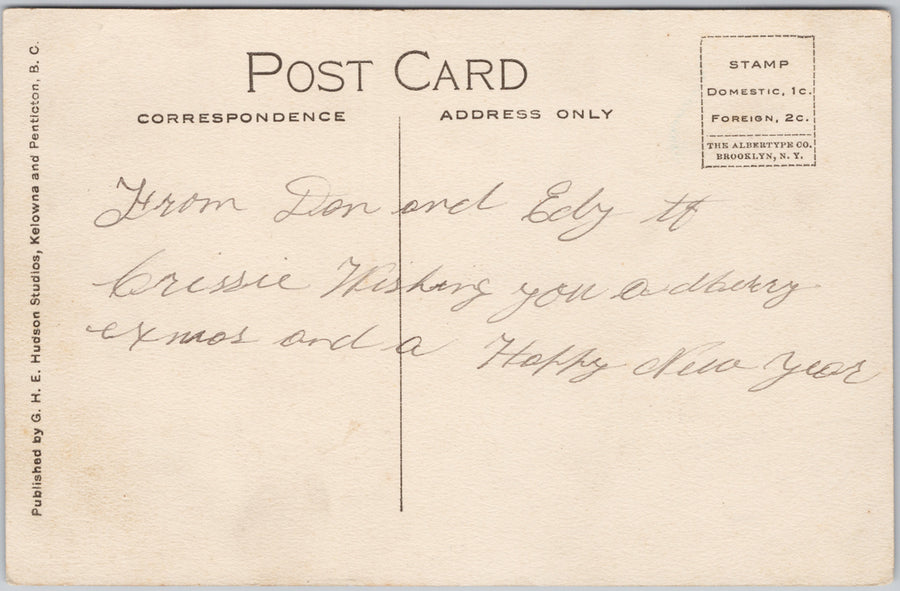 POST CARD
CORRESPONDENCE
ADDRESS ONLY
STAMP
DOMESTIC, 1C.
FOREIGN, 2C.
THE ALBERTYPE CO.
BROOKLYN, N. Y.
Published by G. H. E. Hudson Studios, Kelowna and Penticton, B. C.
From Don and Edy
Crissie Wishing you a
xmas and a Happy New Year